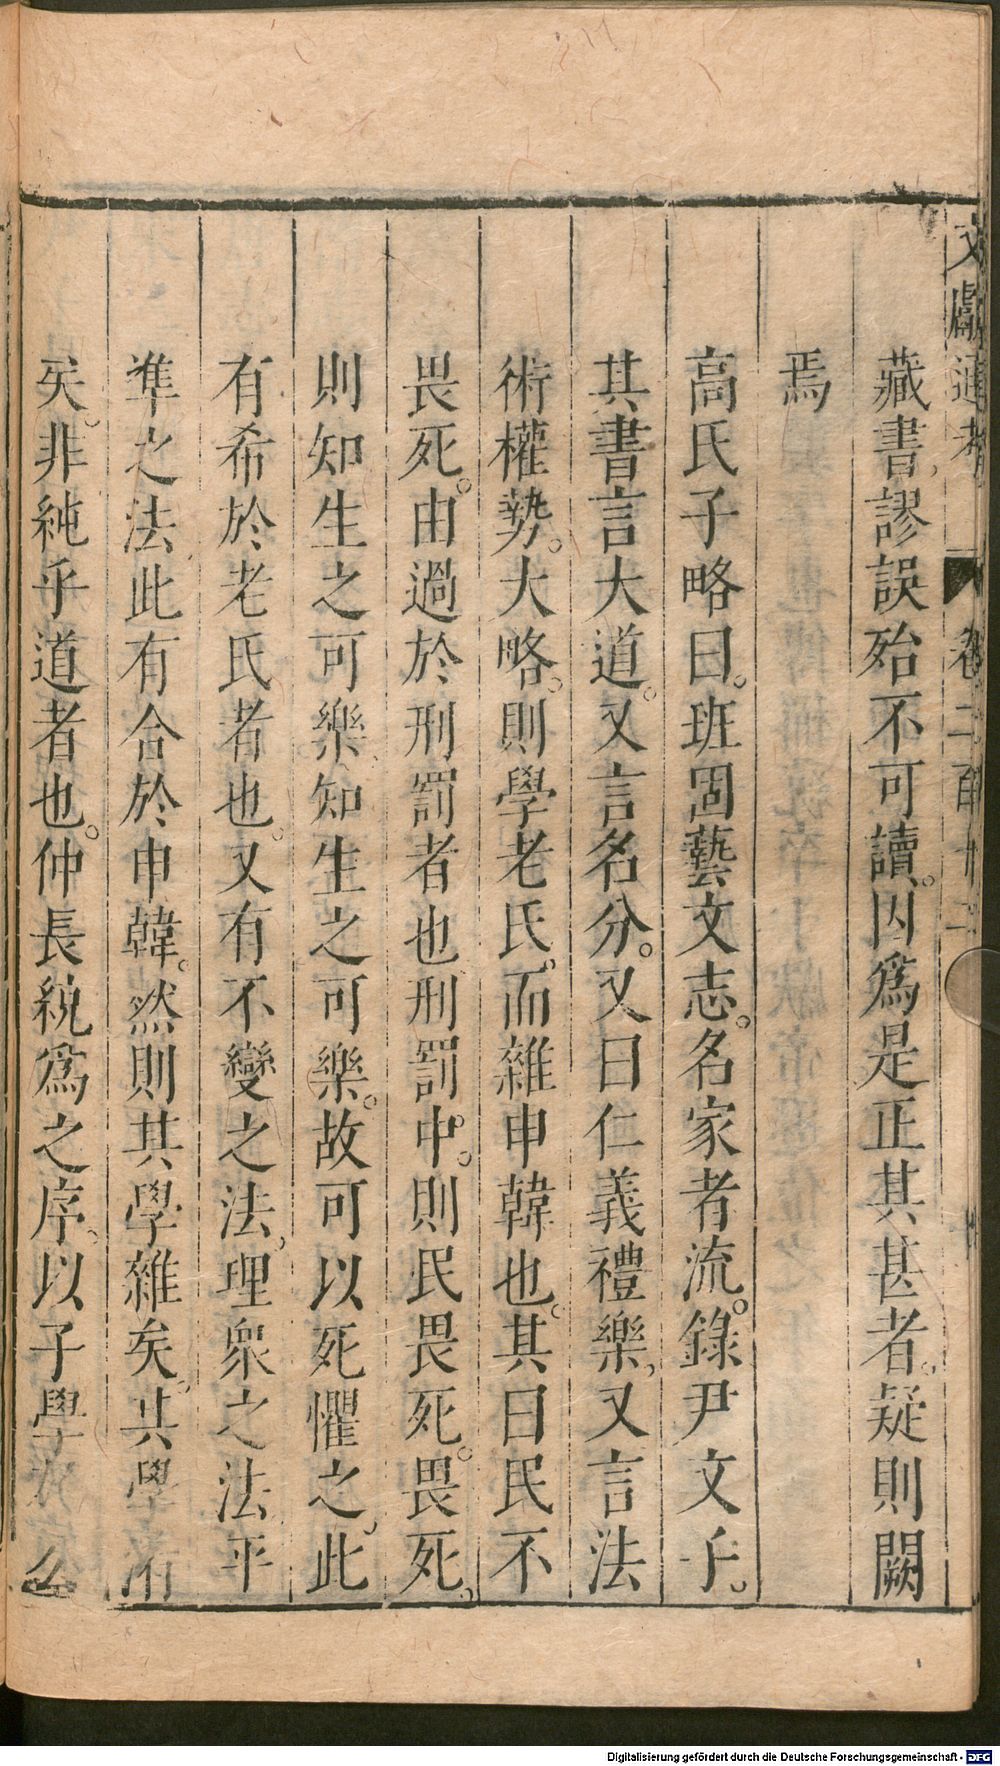 文獻通考 卷二百十二
藏書謬誤殆不可讀因為是正其甚者疑則闕
焉
高氏子略曰班固藝文志名家者流錄尹文子
其書言大道又言名分又曰仁義禮樂又言法
術權勢大略則學老氏而雜申韓也其曰民不
畏死由過於刑罰者也刑罰中則民畏死畏死
則知生之可樂知生之可樂故可以死懼之此
有希於老氏者也又有不變之法理衆之法平
準之法此有合於申韓然則其學雜矣其學淆
矣非純乎道者也仲長統爲之序以子學於公
Digitalisierung gefördert durch die Deutsche Forschungsgemeinschaft - DFG